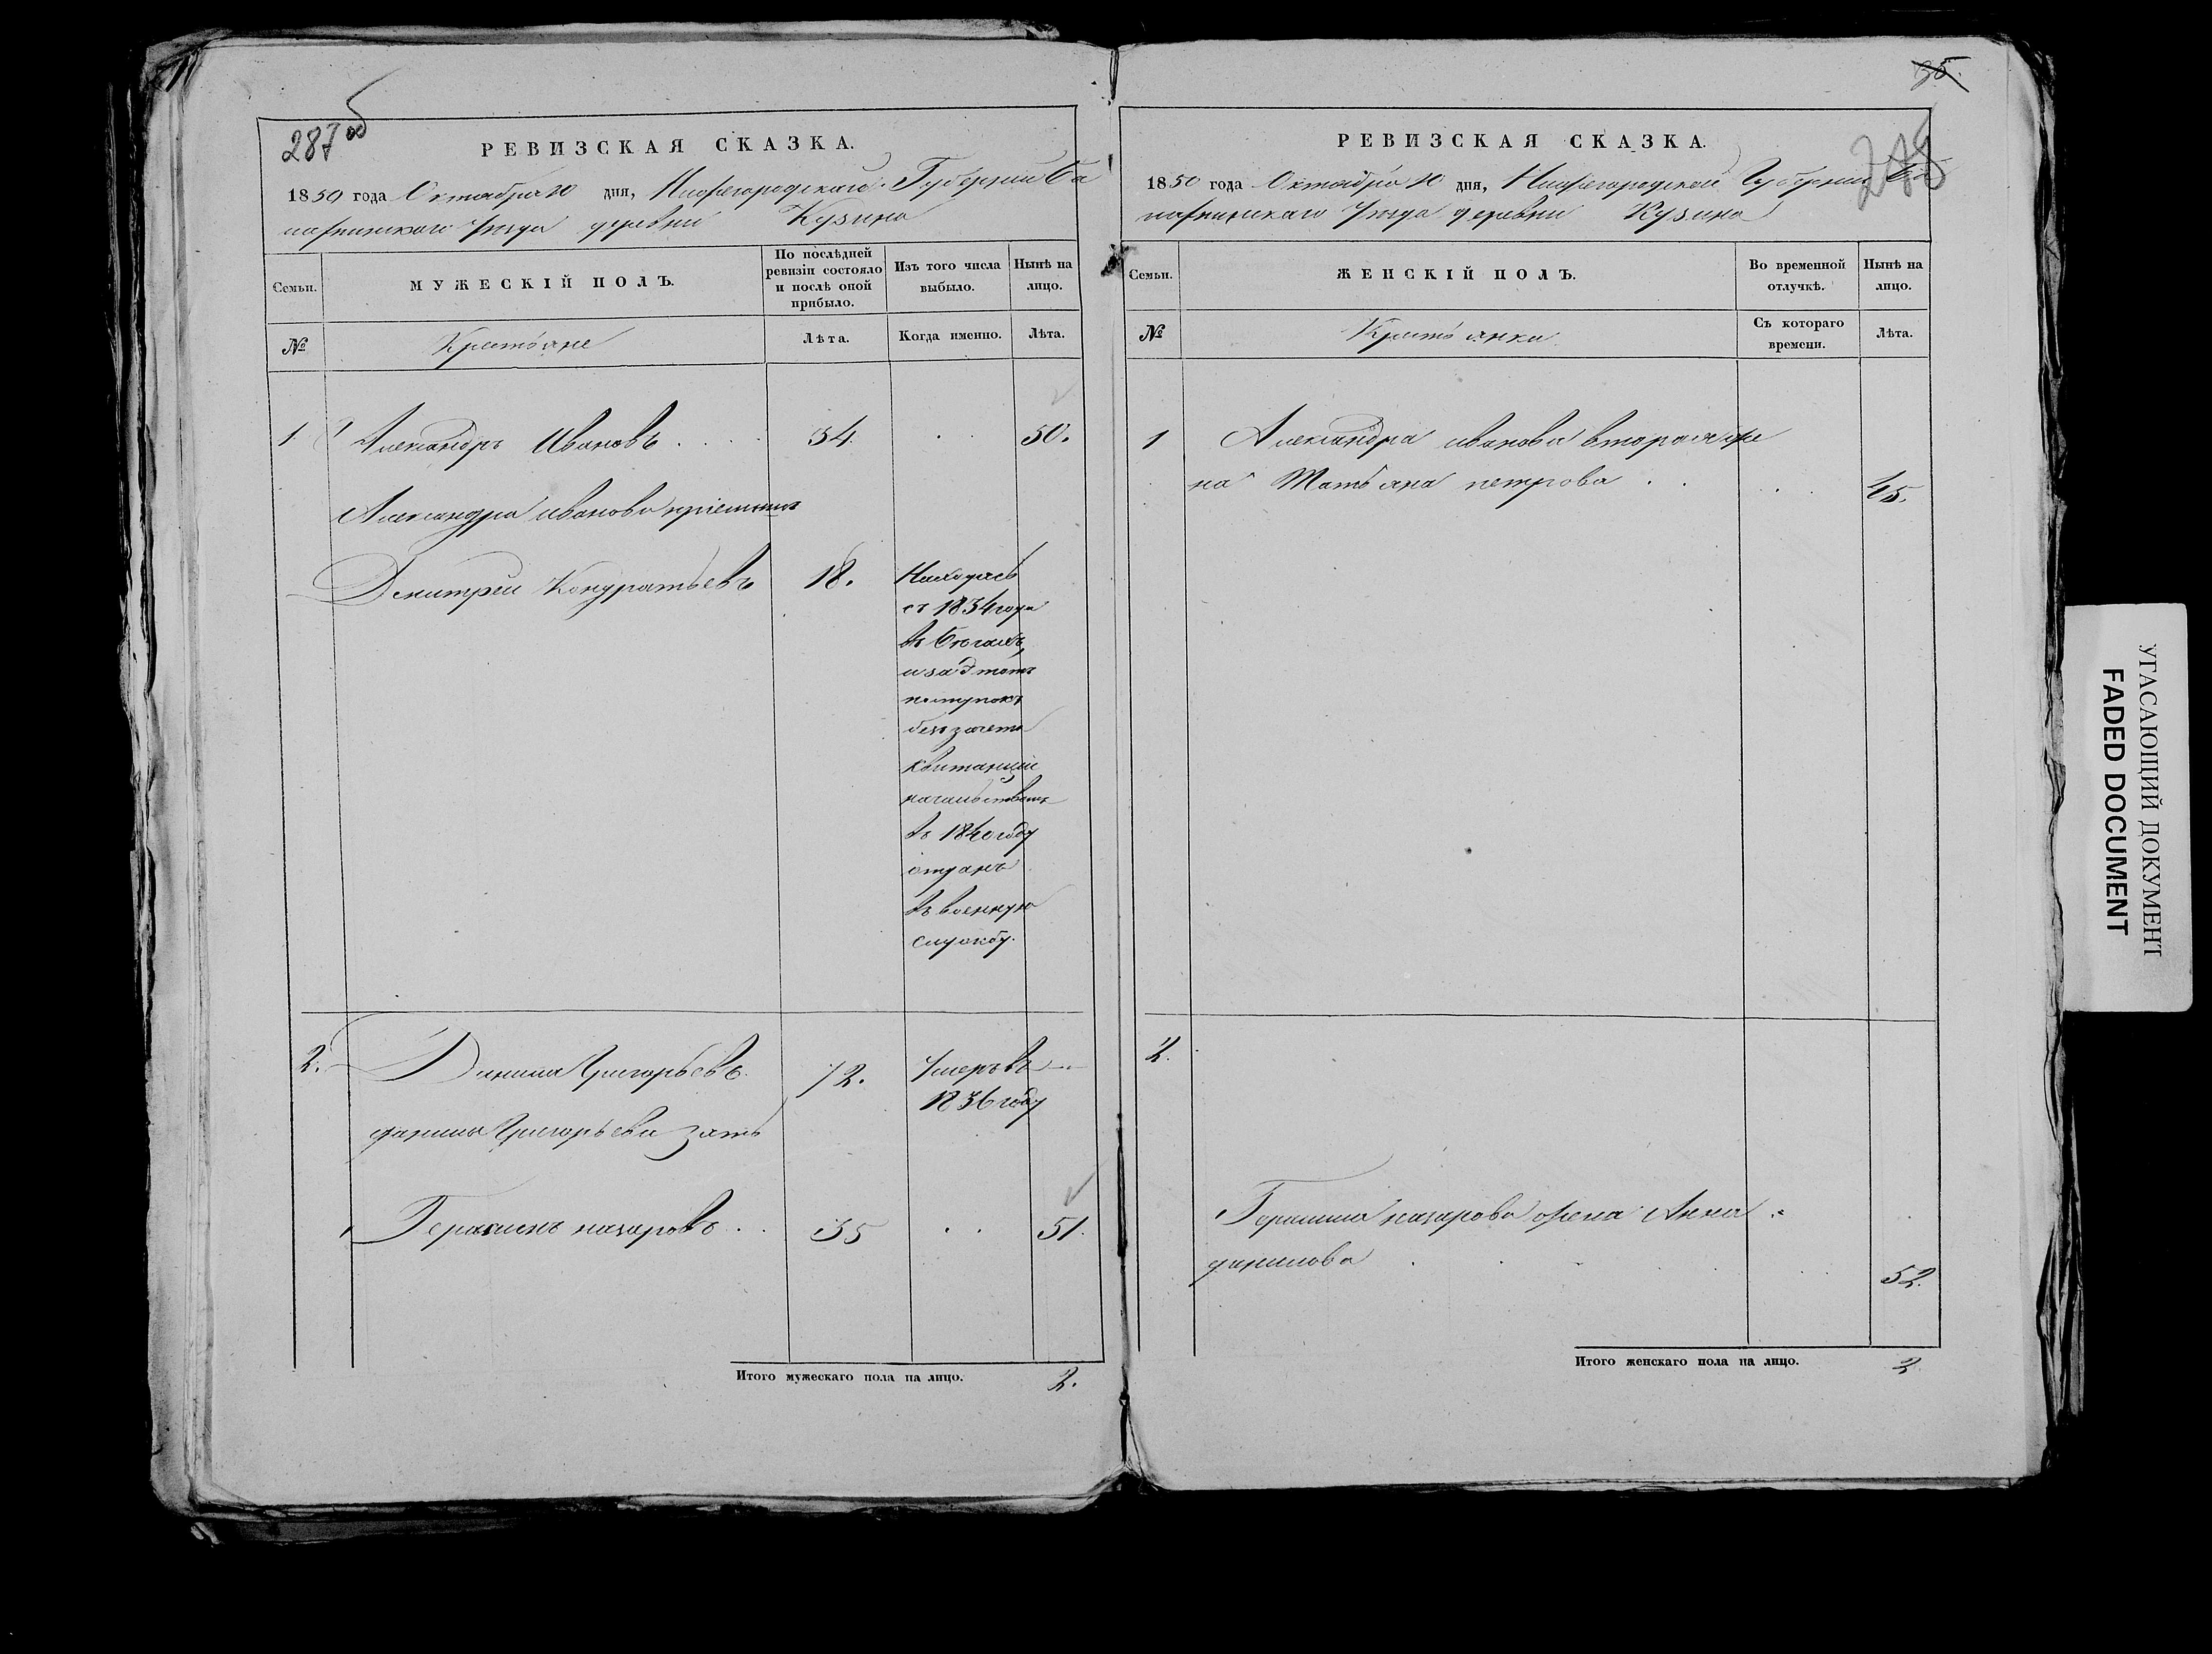 287 об
РЕВИЗСКАЯ СКАЗКА.
1850 года Октября 10 дня, Нижегородской Губернии Ба
лахнинскаго Уезда деревни Кузина
Семьи.
МУЖЕСКІЙ ПОЛЪ.
По послѣдней ревизіи состояло и послѣ оной прибыло.
Изъ того числа выбыло.
Нынѣ на лицо.
№
Крестьяне
Лѣта.
Когда именно.
Лѣта.
1 Александръ Ивановъ . . . . 34. . . 50.
Александра иванова приемышъ
Дмитрей Кондратьевъ 18. Находясь
съ 1834 года
въ бегахъ,
и за этотъ
поступокъ
безъ зачета
квитанции
начальствомъ
въ 1840 году
отданъ
въ военную
службу.
2. Данила Григорьевъ. 72. Умеръ въ
1836 году
данилы Григорьева зять
Герасимъ назаровъ . . 35 . . 51.
Итого мужескаго пола на лицо. 2.
35.
РЕВИЗСКАЯ СКАЗКА.
1850 года Октября 10 дня, Нижегородской Губернии Ба
лахнинскаго Уезда деревни Кузина
Семьи.
ЖЕНСКІЙ ПОЛЪ.
Во временной отлучкѣ.
Нынѣ на лицо.
№
Крестьянки
Съ котораго времени.
Лѣта.
1 Александра иванова вторая же
на Татьяна петрова . . . . 45.
2.
Герасима назарова жена Анна
данилова . . . . 52.
Итого женскаго пола на лицо. 2
УГАСАЮЩИЙ ДОКУМЕНТ
FADED DOCUMENT